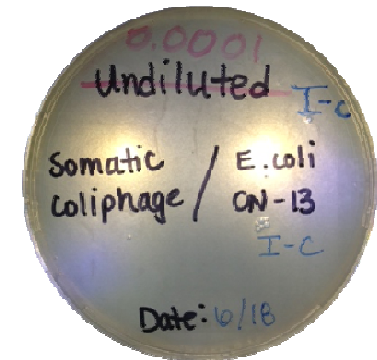 0.0001
Undiluted
I-C
Somatic coliphage / E.coli CN-13
I-C
Date: 6/18